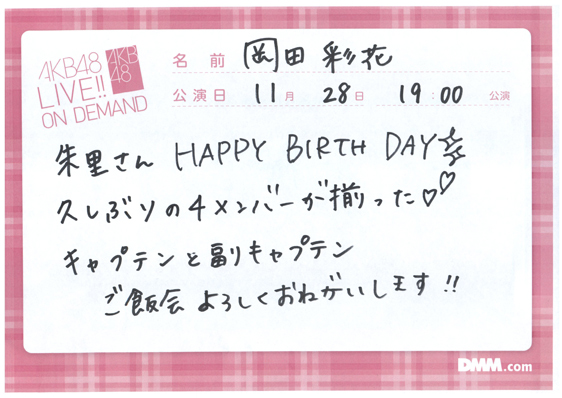 AKB48
LIVE!!
ON DEMAND
AKB
48
名前 岡田 彩花
公演日 11月 28日 19:00 公演
朱里さん HAPPY BIRTH DAY☆
久しぶりの4メンバーが揃った♡♡
キャプテンと副りキャプテン
ご飯会よろしくおねがいします!!
DMM.com